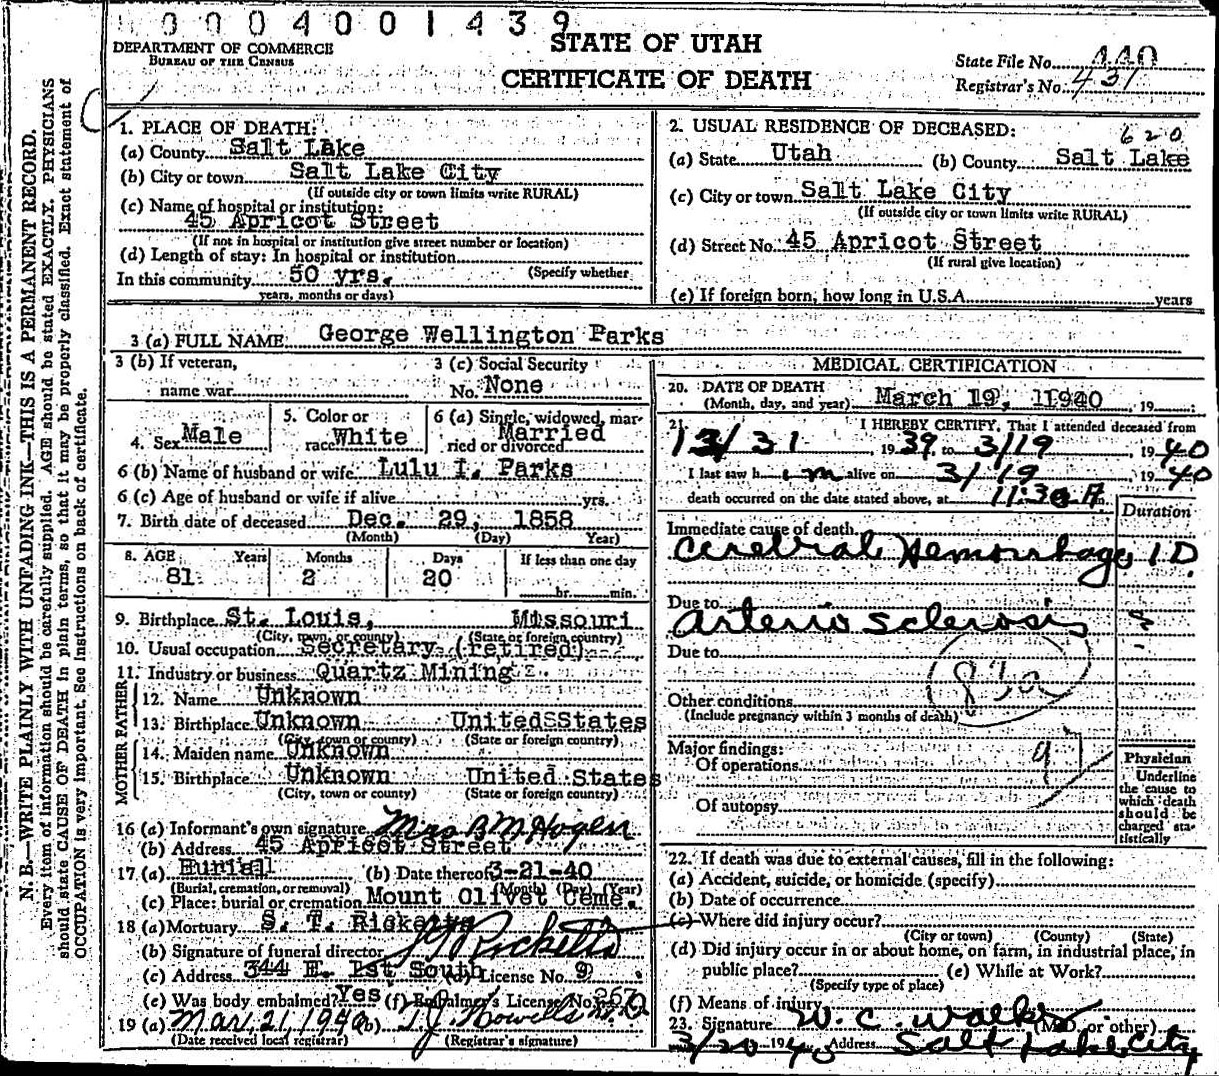 0004001439
DEPARTMENT OF COMMERCE
BUREAU OF THE CENSUS
STATE OF UTAH
CERTIFICATE OF DEATH
State File No. 440
Registrar's No. 431
N. B.—WRITE PLAINLY WITH UNFADING INK—THIS IS A PERMANENT RECORD.
Every item of information should be carefully supplied. AGE should be stated EXACTLY. PHYSICIANS
should state CAUSE OF DEATH in plain terms, so that it may be properly classified. Exact statement of
OCCUPATION is very important. See instructions on back of certificate.
1. PLACE OF DEATH:
(a) County Salt Lake
(b) City or town Salt Lake City
(If outside city or town limits write RURAL)
(c) Name of hospital or institution:
45 Apricot Street
(If not in hospital or institution give street number or location)
(d) Length of stay: In hospital or institution
(Specify whether
In this community 50 yrs.
years, months or days)
2. USUAL RESIDENCE OF DECEASED:
620
(a) State Utah (b) County Salt Lake
(c) City or town Salt Lake City
(If outside city or town limits write RURAL)
(d) Street No. 45 Apricot Street
(If rural give location)
(e) If foreign born, how long in U.S.A. years
3 (a) FULL NAME George Wellington Parks
3 (b) If veteran,
name war
3 (c) Social Security
No. None
4. Sex Male
5. Color or
race White
6 (a) Single, widowed, mar-
ried or divorced Married
6 (b) Name of husband or wife Lulu I. Parks
6 (c) Age of husband or wife if alive yrs.
7. Birth date of deceased Dec. 29, 1858
(Month) (Day) Year)
8. AGE Years Months Days If less than one day
81 2 20
hr. min.
9. Birthplace St. Louis, Missouri
(City, town, or county) (State or foreign country)
10. Usual occupation Secretary (retired)
11. Industry or business Quartz Mining
FATHER
12. Name Unknown
13. Birthplace Unknown United States
(City, town or county) (State or foreign country)
MOTHER
14. Maiden name Unknown
15. Birthplace Unknown United States
(City, town or county) (State or foreign country)
16 (a) Informant's own signature Mrs B M Hogen
(b) Address 45 Apricot Street
17 (a) Burial (b) Date thereof 3-21-40
(Burial, cremation, or removal) (Month) (Day) (Year)
(c) Place: burial or cremation Mount Olivet Ceme.
18 (a) Mortuary S. T. Ricketts
(b) Signature of funeral director Ricketts
(c) Address 344 E. 1st South (d) License No. 9
(e) Was body embalmed? Yes (f) Embalmer's License No.
19 (a) Mar. 21, 1940 (b) T. J. Howells
(Date received local registrar) (Registrar's signature)
MEDICAL CERTIFICATION
20. DATE OF DEATH
(Month, day, and year) March 19, 1940, 19
21. I HEREBY CERTIFY, That I attended deceased from
12/31, 1939, to 3/19, 1940
I last saw him alive on 3/19, 1940
death occurred on the date stated above, at 11:30 A m.
Duration
Immediate cause of death
Cerebral Hemorrhage 1 D.
Due to
Arterio sclerosis
Due to
83a
Other conditions
(Include pregnancy within 3 months of death)
97
Major findings:
Of operations
Of autopsy
Physician
Underline
the cause to
which death
should be
charged sta-
tistically
22. If death was due to external causes, fill in the following:
(a) Accident, suicide, or homicide (specify)
(b) Date of occurrence
(c) Where did injury occur?
(City or town) (County) (State)
(d) Did injury occur in or about home, on farm, in industrial place, in
public place? (e) While at Work?
(Specify type of place)
(f) Means of injury
23. Signature W. C. Walker (M.D. or other)
3/20 1940 Address Salt Lake City